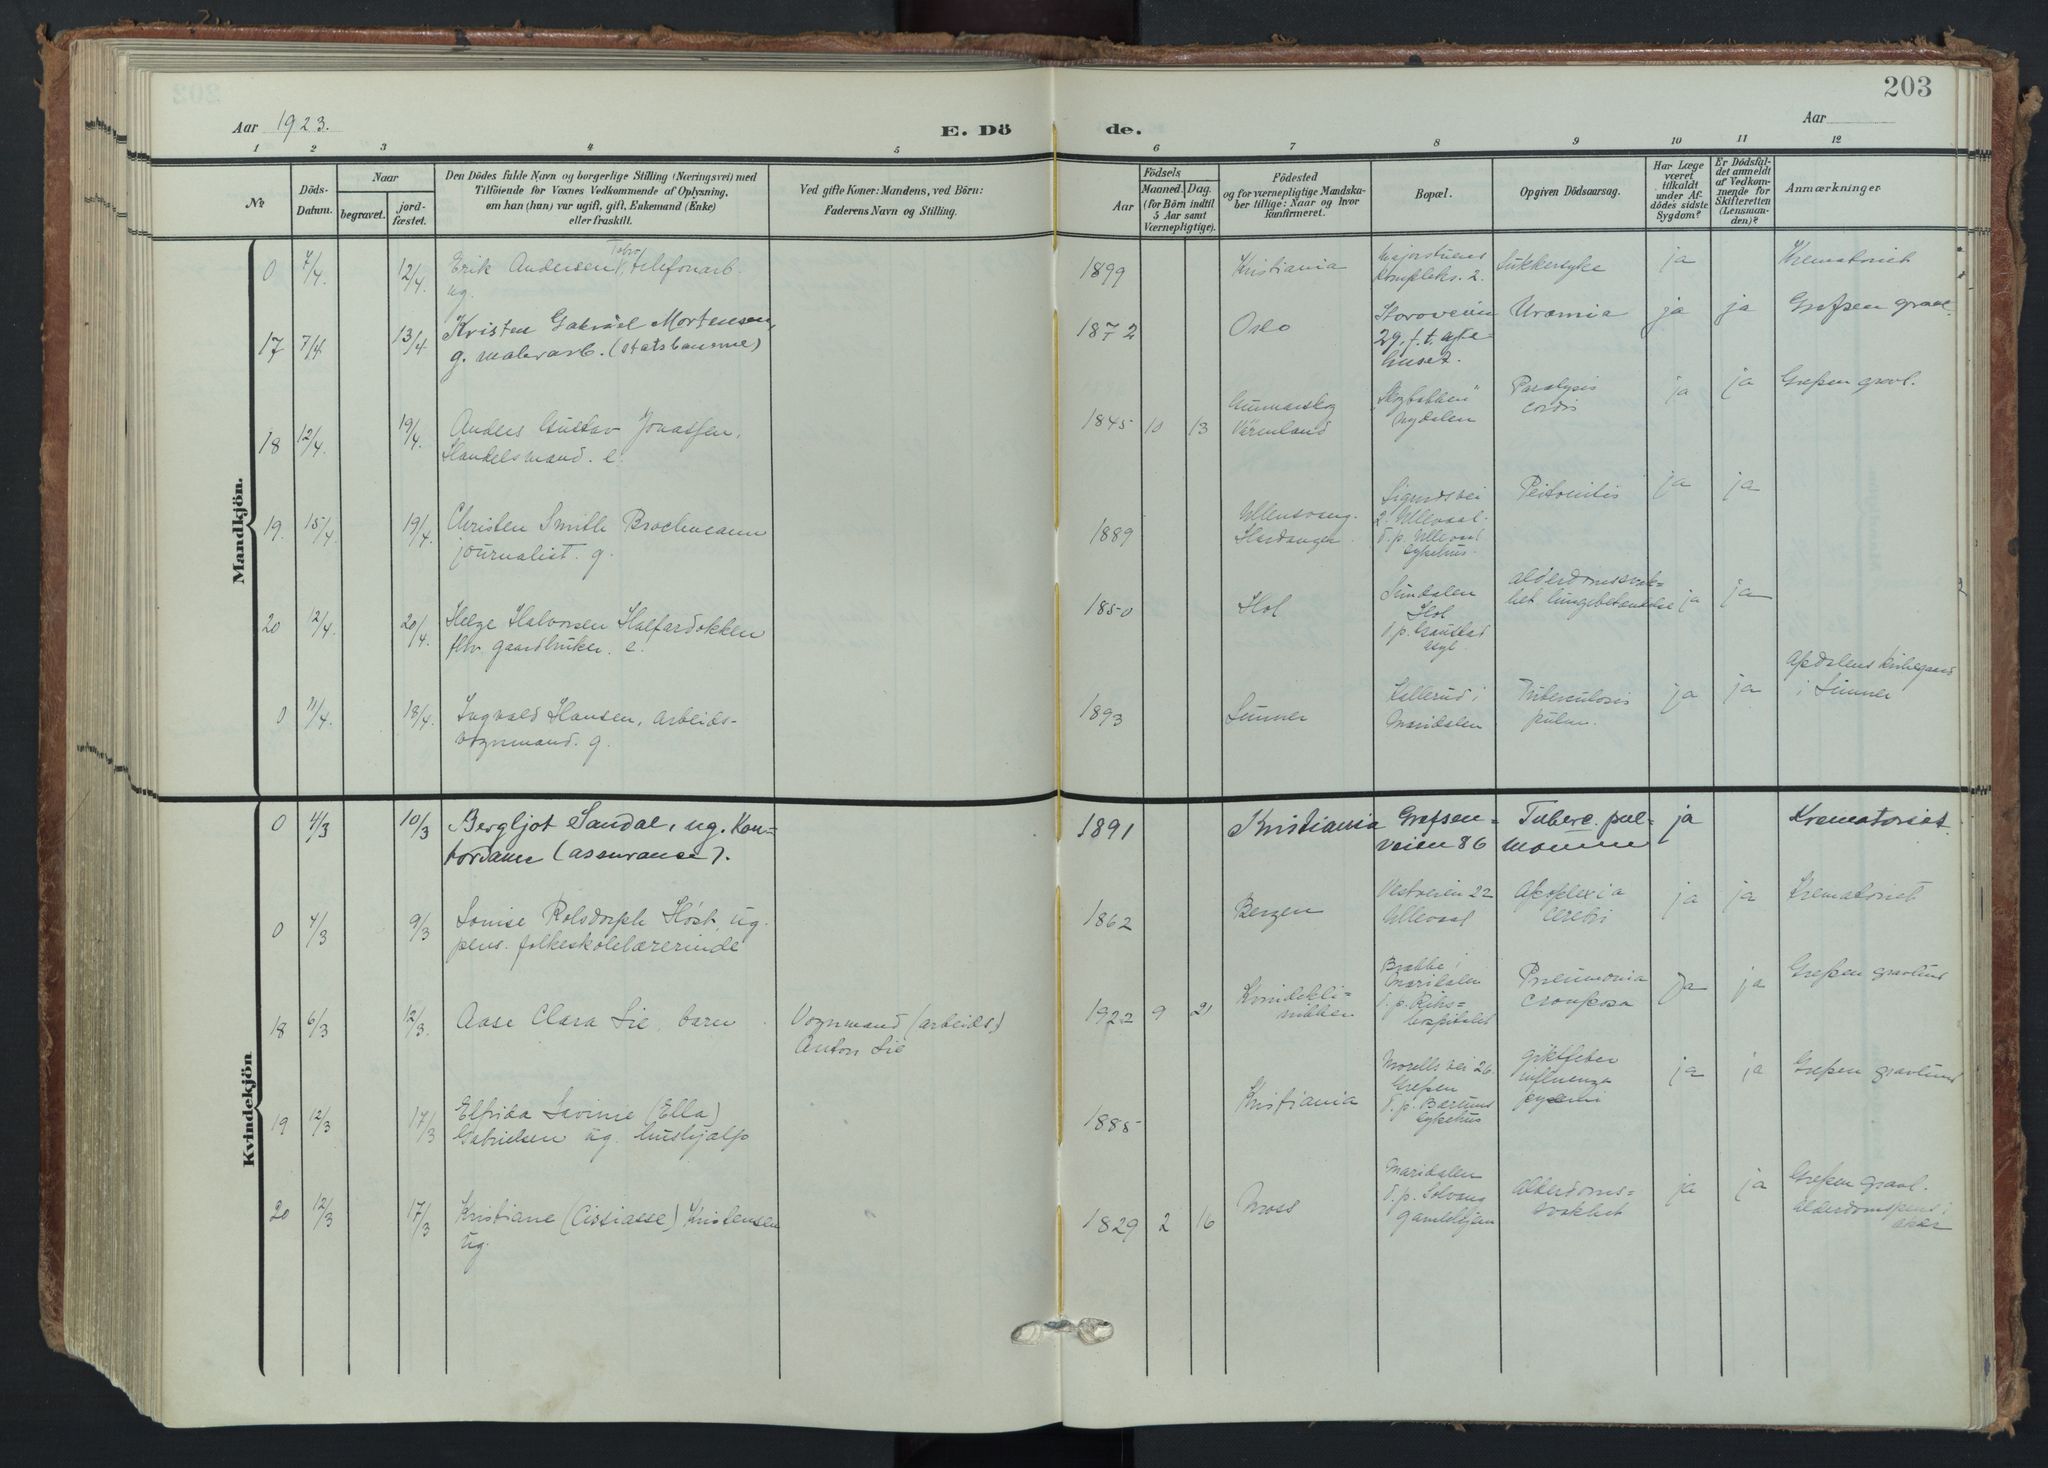 203
Aar 1923.
E. Dö
de.
Aar
1 2 3 4 5 6 7 8 9 10 11 12
No
Döds-
Datum.
Naar
begravet.
jord-
fæstet.
Den Dödes fulde Navn og borgerlige Stilling (Næringsvei) med
Tilföiende for Voxnes Vedkommende af Oplysning,
om han (hun) var ugift, gift, Enkemand (Enke)
eller fraskilt.
Ved gifte Koner: Mandens, ved Börn:
Faderens Navn og Stilling.
Födsels
Aar
Maaned. Dag.
(for Börn indtil
5 Aar samt
Værnepligtige).
Födested
og for værnepligtige Mandska-
ber tillige: Naar og hvor
konfirmeret.
Bopæl.
Opgiven Dödsaarsag.
Har Læge
været
tilkaldt
under Af-
dödes sidste
Sygdom?
Er Dödsfal-
det anmeldt
af Vedkom-
mende for
Skifteretten
(Lensman-
den)?
Anmærkninger
Mandkjön.
0 7/4 12/4. Erik Andersen telefonarb.
ug.
1899 Kristiania Majorstuens
kompleks. 2. Sukkersyke ja Krematoriet
17 7/4 13/4 Kristen Gabriel Mortensen,
g. malerarb. (statsbanerne)
1872 Oslo Storoveien
29. Uræmia ja ja Grefsen gravl.
18 12/4. 19/4. Anders Gustav Jonassen,
Handelsmand. e.
1845 10 13 Gunnarskog
Värmland "Skogbakken"
Nydalen Paralysis
cordis ja ja Grefsen gravl.
19. 15/4 19/4. Christen Smith Brochmann
journalist. g.
1889 Ullensvang.
Hardanger. Sigurdsvei
2. Ullevaal.
d.p. Ullevaal
sykehus. Peritonitis ja ja
20 12/4. 20/4. Helge Halvorsen Halfardokken
fhv. gaardbruker. e.
1850 Hol Sundalen
Hol
d.p. Gaustad
asyl. alderdomssvak-
het lungebetændelse ja ja
0 11/4 18/4. Ingvald Hansen, arbeids-
vognmand. g.
1893 Lunner Kallerud i
Maridalen Tuberculosis
pulm. ja ja kirkegaard
i Lunner
Kvindekjön
0 4/3 10/3 Bergljot Sandal, ug. Kon-
tordame (assurance).
1891 Kristiania Grefsen-
veien 86 Tuberc. pul-
monum ja Krematoriet.
0 4/3 9/3 Louise Rolsdorph Høst, ug.
pens. folkeskolelærerinde
1862 Bergen Vestveien 22
Ullevaal Apoplexia
cerebri ja ja Krematoriet
18 6/3 12/3. Aase Clara Lie, barn. Vognmand (arbeids)
Anton Lie
1922 9 21 Kvindekli-
nikken Brække i
Maridalen
d.p. Riks-
hospitalet Pneumonia
crouposa Ja ja Grefsen gravlund
19 12/3 17/3 Elfrida Lavinie (Ella)
Gabrielsen ug. hushjælp
1885 Kristiania Morells vei 26
Grefsen
d.p. Bærums
sykehus giktfeber
influenza ja ja Grefsen gravlund
20 12/3 17/3 Kristiane (Cissiasse) Kristensen
ug.
1829 2 16 Moss Maridalen
d.p. Solvang
gamlehjem Alderdoms-
svakhet ja ja Grefsen gravl.
Alderdomspens. i
Aker